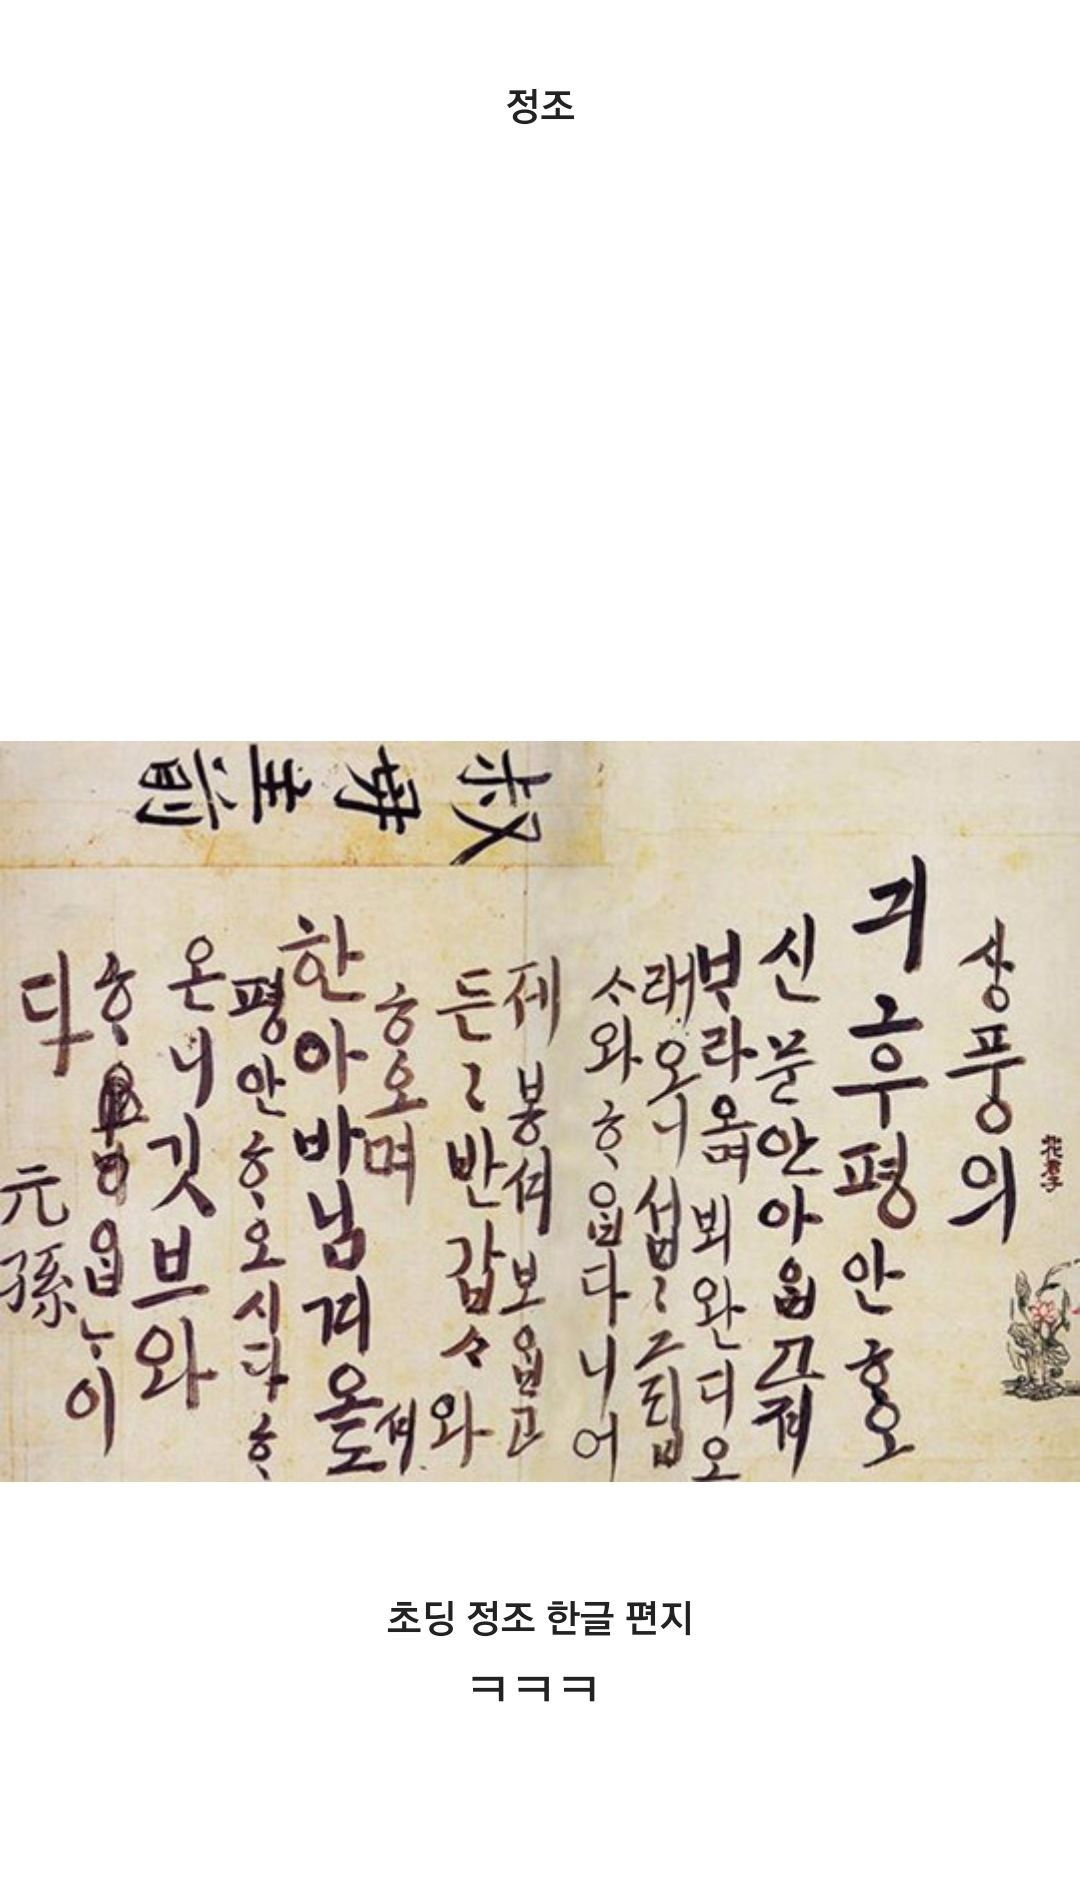 정조
叔母主前
상풍의
긔후평안ᄒᆞ오
신문안아ᅌᆞᆸ고져
ᄇᆞ라ᅌᆞ며뵈완디오
래오니섭섭그립
ᄉᆞ와ᄒᆞᅌᆞᆸ다니어
제봉셔보ᅌᆞᆸ고
든든반갑ᄉᆞ와
ᄒᆞ오며
한아바님겨오셔도
평안ᄒᆞ오시다ᄒᆞ
온니깃브와
ᄒᆞᅌᆞᆸᄂᆞ이
다
元孫
초딩 정조 한글 편지
ㅋㅋㅋ